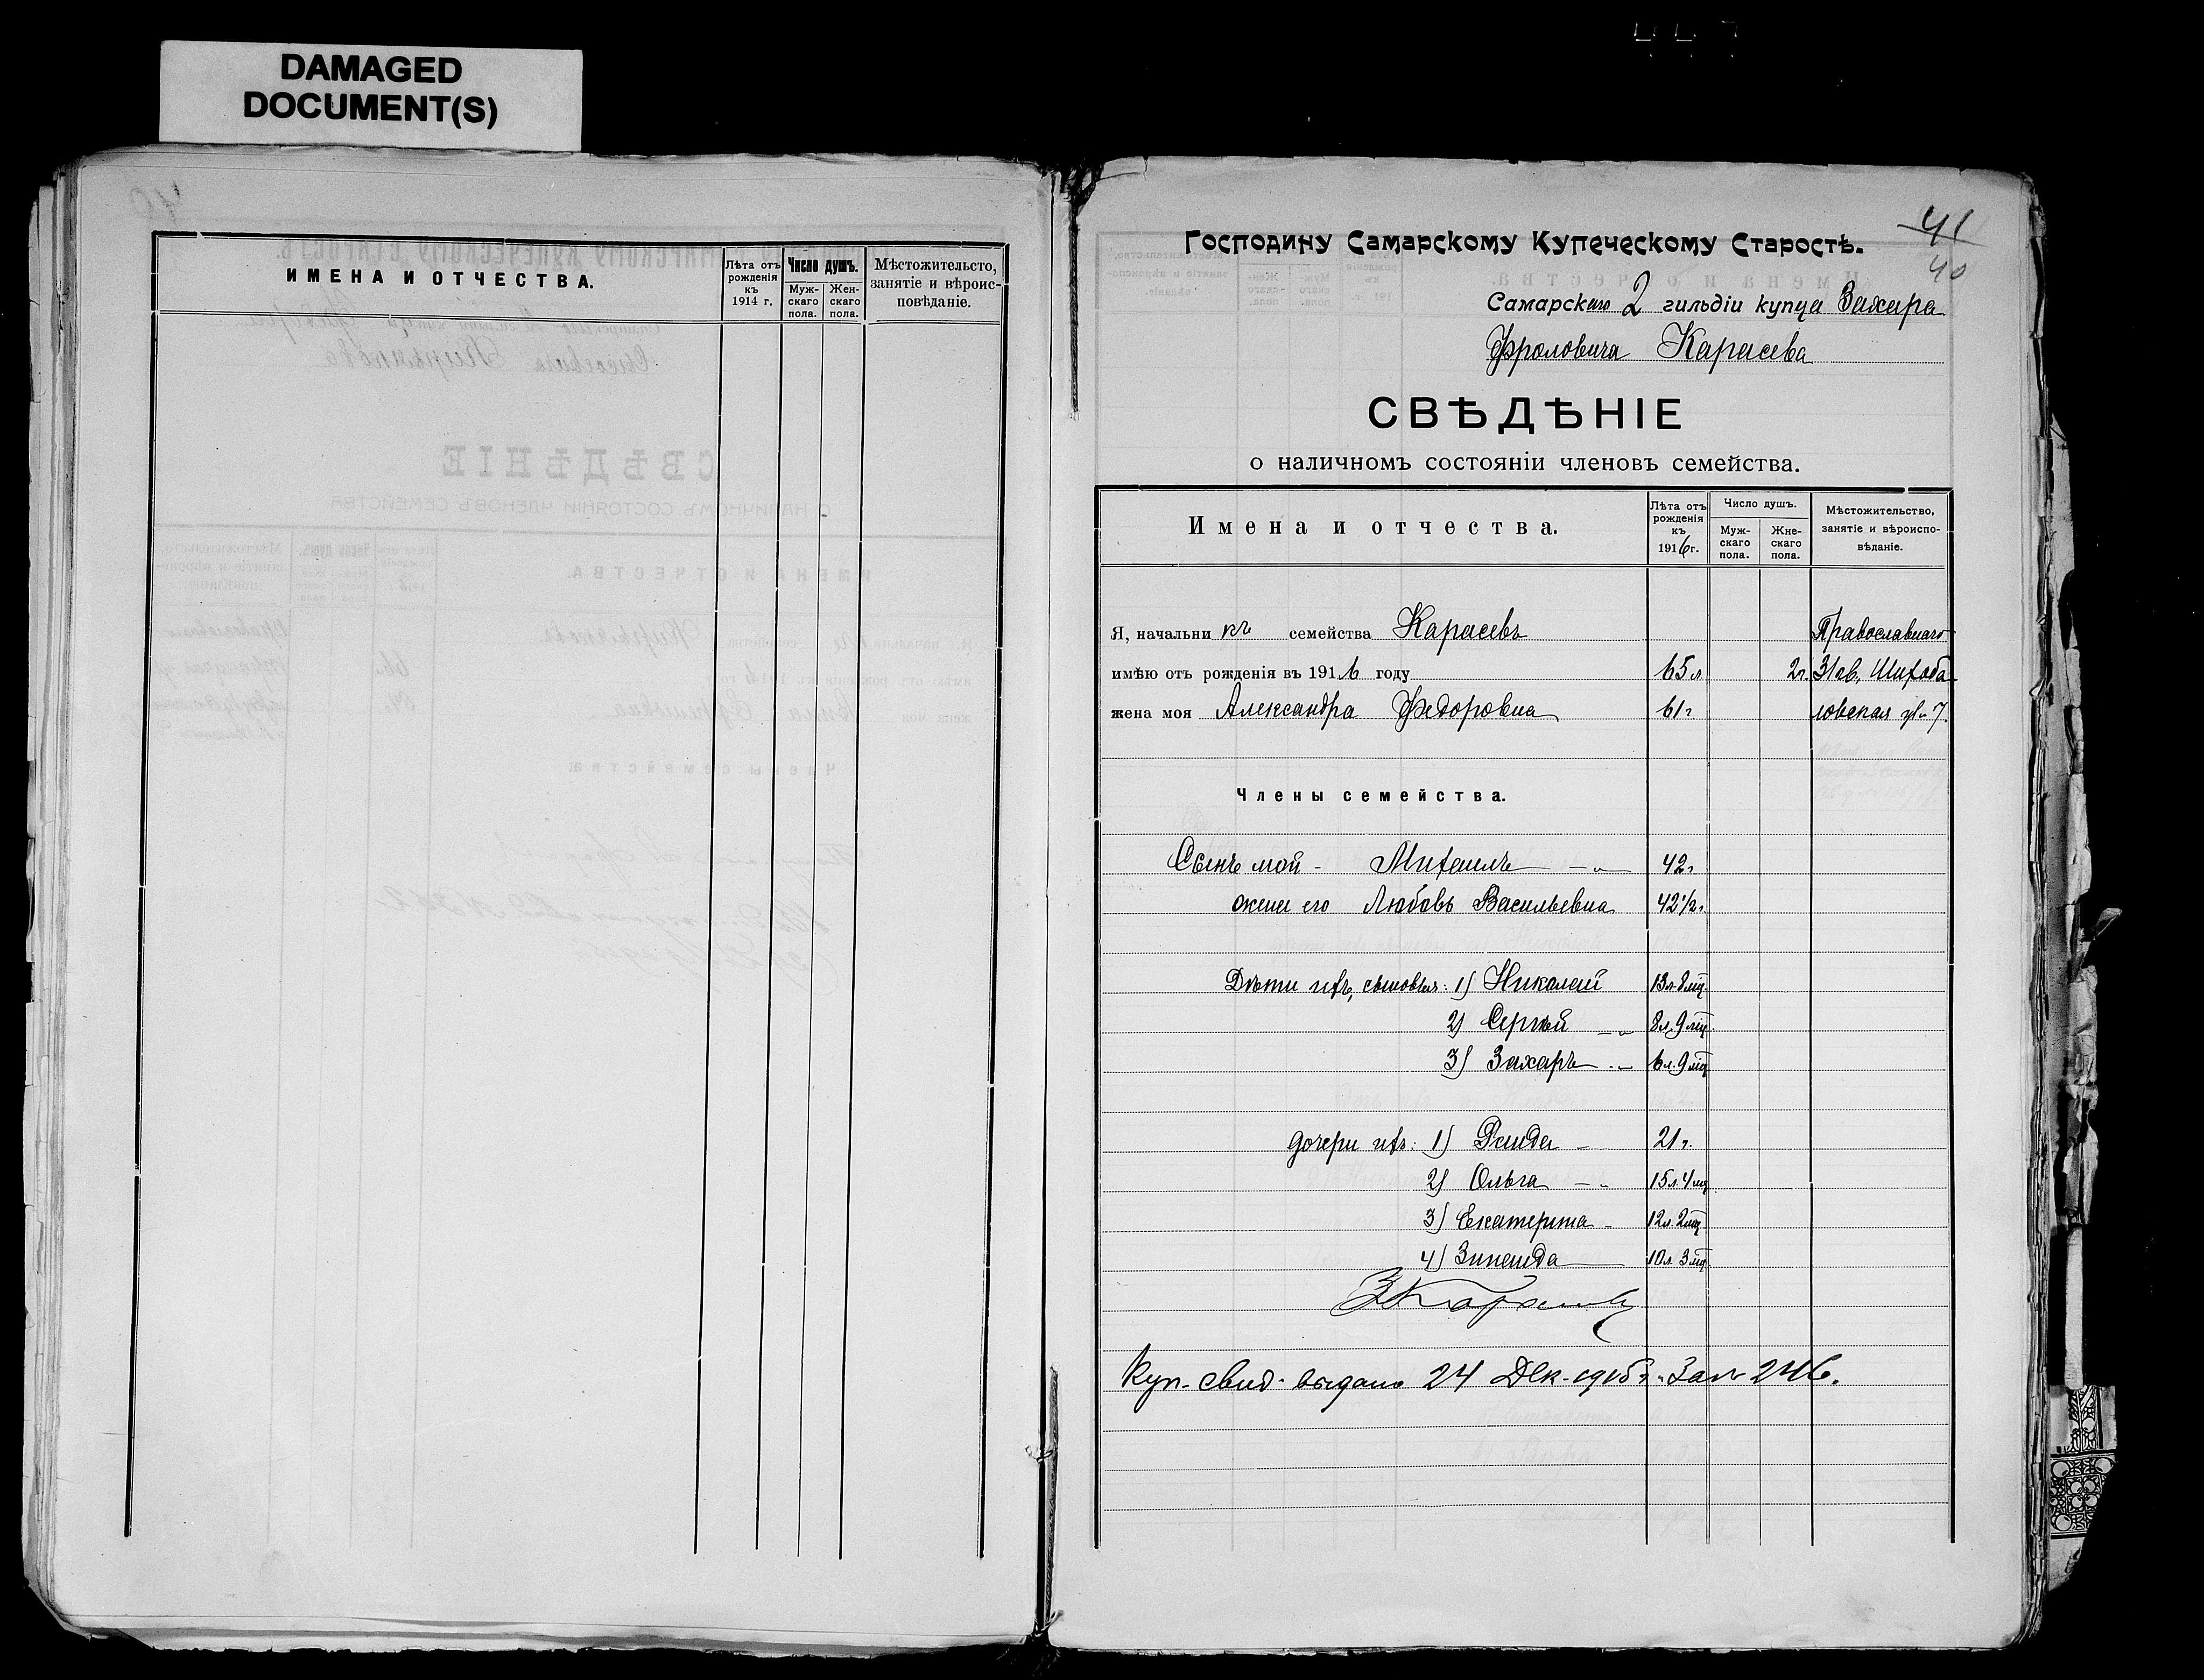 DAMAGED
DOCUMENT(S)
ИМЕНА И ОТЧЕСТВА.
Лѣта отъ рожденія къ 1914 г.
Число душъ.
Муж-скаго пола.
Жен-скаго пола.
Мѣстожительсто, занятіе и вѣроис-повѣданіе.
41
40
Господину Самарскому Купеческому Старостѣ.
Самарскаго 2 гильдіи купца Захара
Фроловича Карасева
СВѢДѢНІЕ
о наличномъ состояніи членовъ семейства.
Имена и отчества.
Лѣта отъ рожденія къ 1916 г.
Число душъ.
Муж-скаго пола.
Жне-скаго пола.
Мѣстожительство, занятіе и вѣроиспо-вѣданіе.
Я, начальникъ семейства Карасевъ Православнаго
имѣю отъ рожденія въ 1916 году 65 л
жена моя Александра Федоровна 61 г
Члены семейства.
Сынъ мой - Михаилъ — „ — 42 г
жена его Любовь Васильевна 42 1/2 г.
Дѣти ихъ, сыновья: 1) Николай 13 л. 8 мц
2) Сергѣй — „ 8 л. 9 мц
3) Захаръ 6 л. 9 мц
дочери ихъ: 1) 21 г.
2) Ольга — „ 15 л 4 мц
3) Екатерина - 12 л. 2 мц
4) Зинаида 10 л. 3 мц
ЗКарасевъ
Куп. свид. выдано 24 Дек. 1915 г. за № 246.